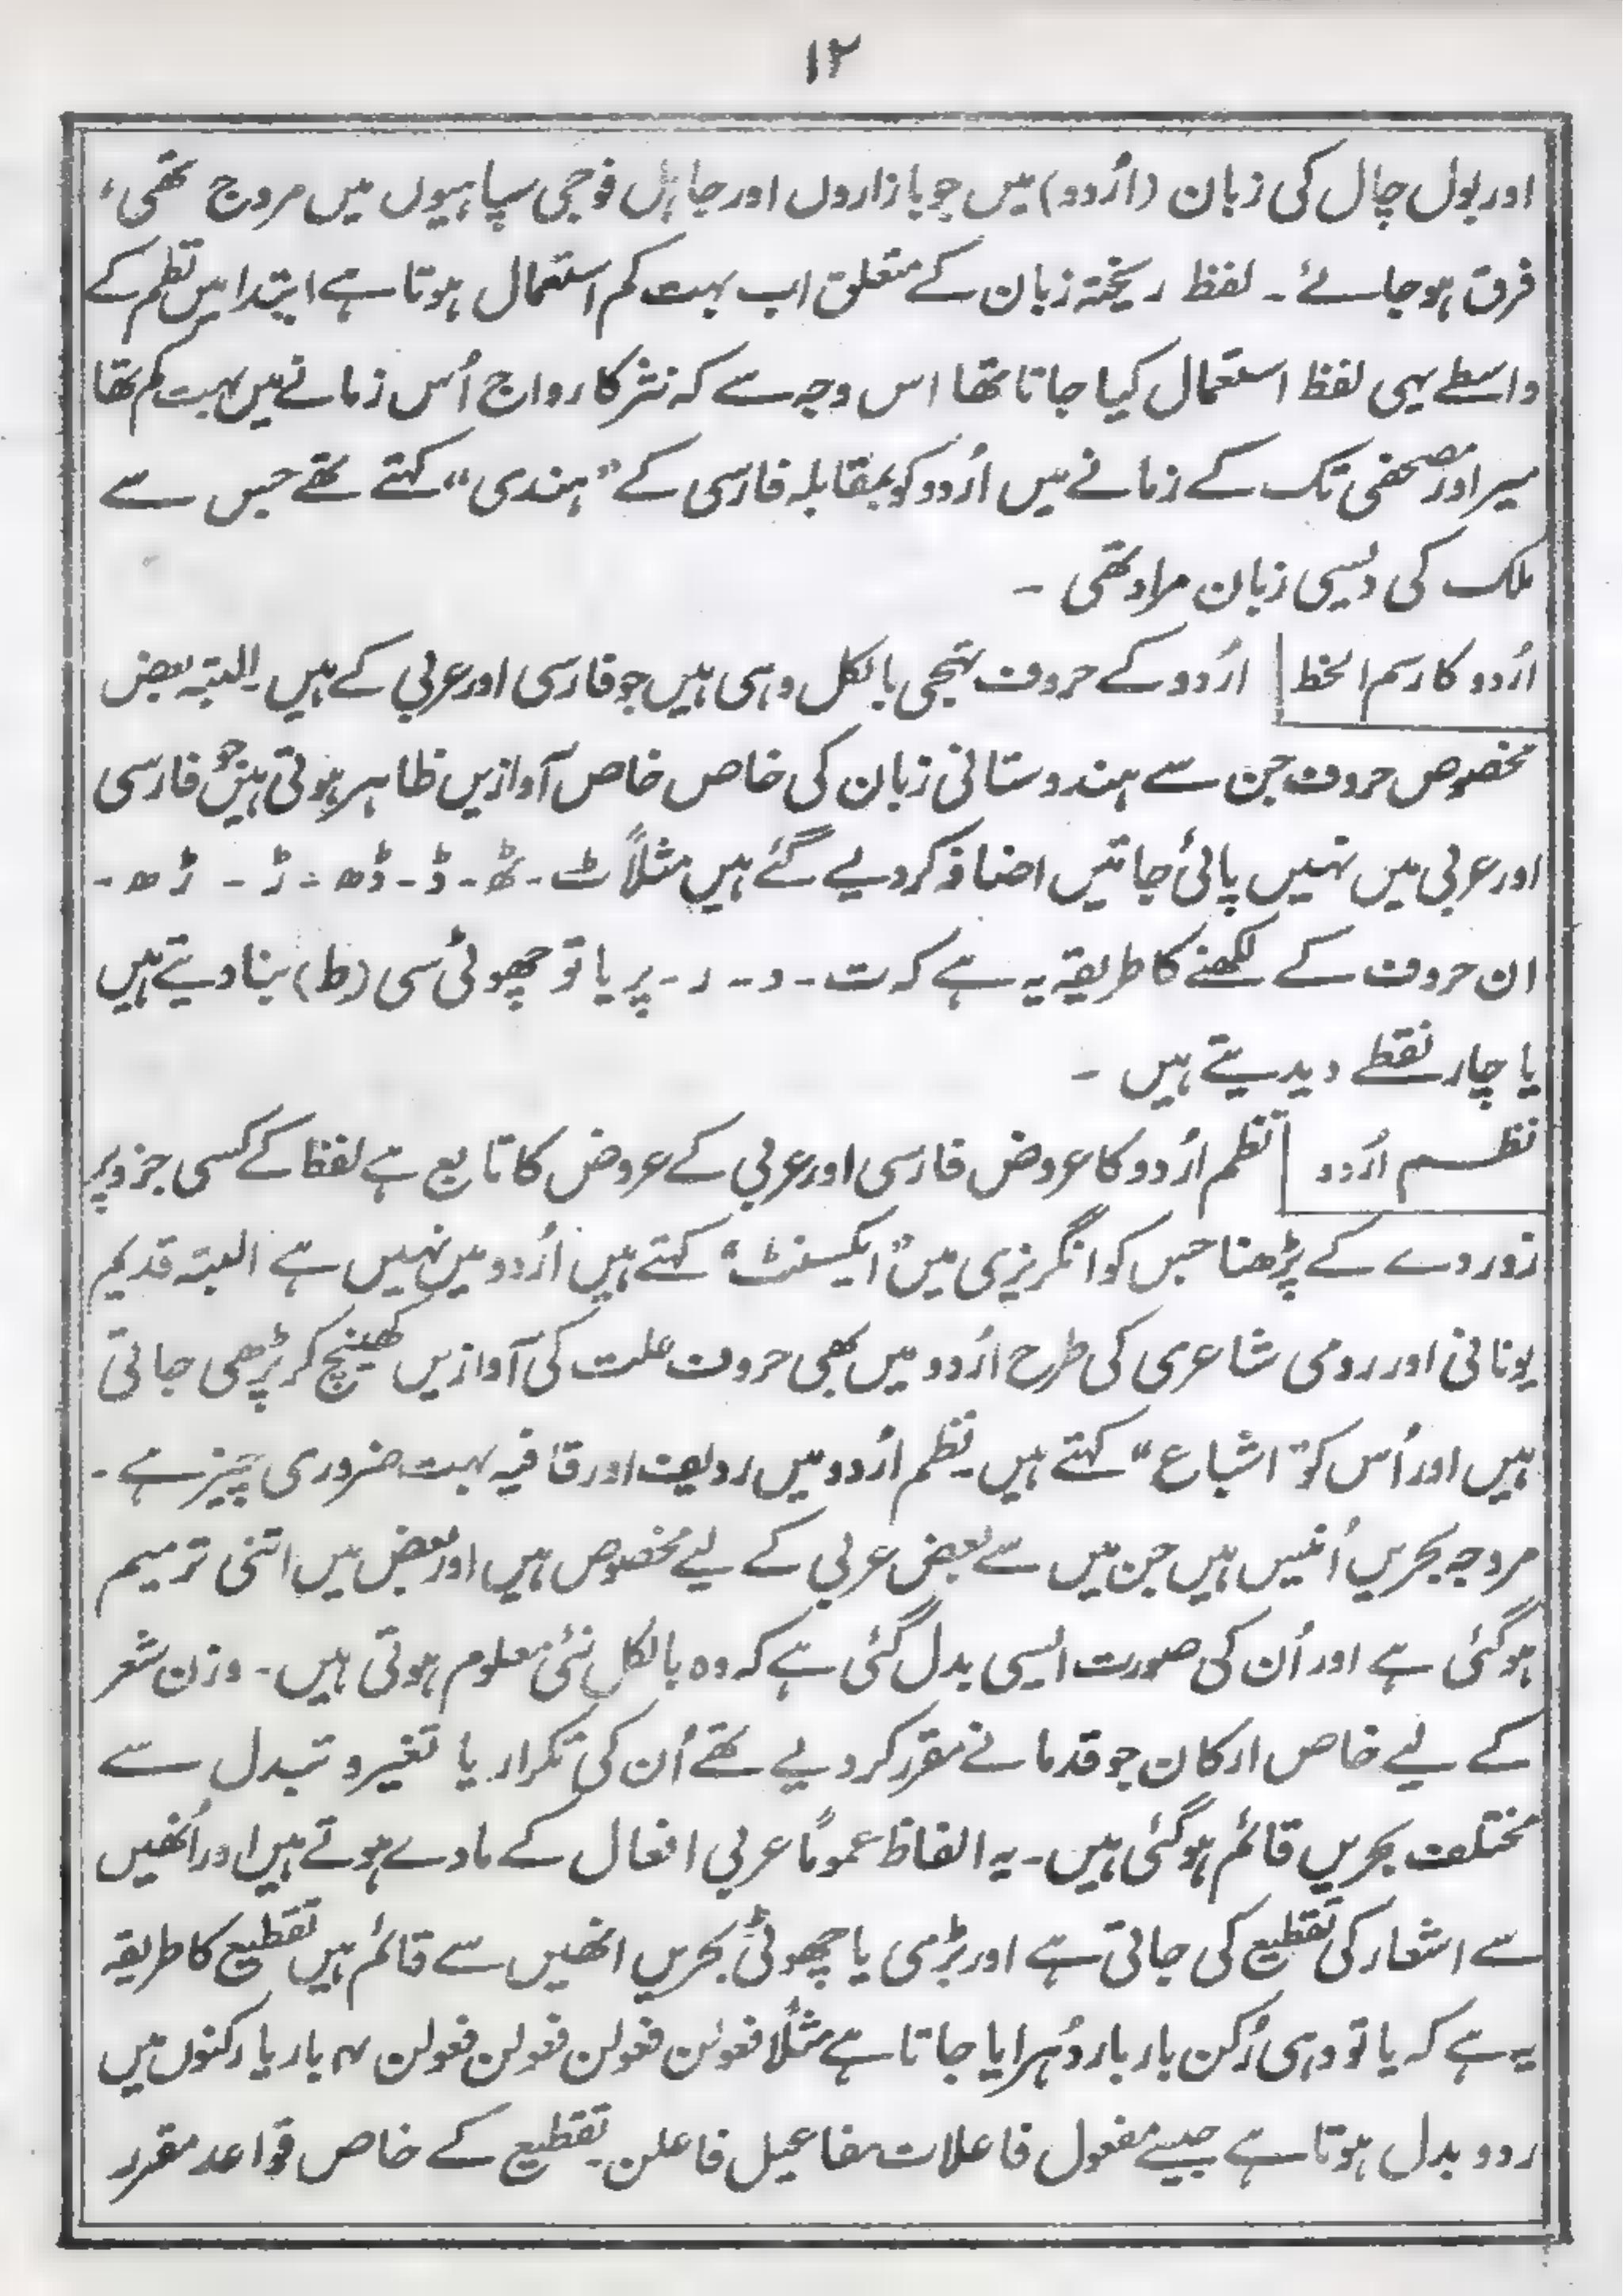 ۱۲
اور بول چال کی زبان (اُردو) میں جو بازاروں اور جاہل فوجی سپاہیوں میں مروج تھی،
فرق ہو جائے ۔ لفظ ریختہ زبان کے متعلق اب بہت کم استعمال ہوتا ہے ابتدا میں نظم کے
واسطے یہی لفظ استعمال کیا جاتا تھا اس وجہ سے کہ نثر کا رواج اُس زمانے میں بہت کم تھا
میر اور مصحفی تک کے زمانے میں اُردو کو بمقابلہ فارسی کے "ہندی" کہتے تھے جس سے
ملک کی دیسی زبان مراد تھی ۔
اُردو کا رسم الخط اُردو کے حروف تہجی بالکل وہی ہیں جو فارسی اور عربی کے ہیں۔ البتہ بعض
مخصوص حروف جن سے ہندوستانی زبان کی خاص خاص آوازیں ظاہر ہوتی ہیں جو فارسی
اور عربی میں نہیں پائی جاتیں اضافہ کر دیے گئے ہیں مثلاً ٹ ۔ ٹھ ۔ ڈ ۔ ڈھ ۔ ڑ ۔ ڑھ ۔
ان حروف کے لکھنے کا طریقہ یہ ہے کہ ت ۔ د ۔ ر ۔ پر یا تو چھوٹی سی (ط) بنا دیتے ہیں
یا چار نقطے دیدیتے ہیں ۔
نظم اُردو نظم اُردو کا عروض فارسی اور عربی کے عروض کا تابع ہے لفظ کے کسی جزو پر
زور دے کے پڑھنا جس کو انگریزی میں "ایکسنٹ" کہتے ہیں اُردو میں نہیں ہے البتہ قدیم
یونانی اور رومی شاعری کی طرح اُردو میں بھی حروف علت کی آوازیں کھینچ کر پڑھی جاتی
ہیں اور اُس کو "اشباع" کہتے ہیں۔ نظم اُردو میں ردیف اور قافیہ بہت ضروری چیز ہے ۔
مروجہ بحریں اُنیس ہیں جن میں سے بعض عربی کے لیے مخصوص ہیں اور بعض میں اتنی ترمیم
ہو گئی ہے اور اُن کی صورت ایسی بدل گئی ہے کہ وہ بالکل نئی معلوم ہوتی ہیں ۔ وزن شعر
کے لیے خاص ارکان جو قدما نے مقرر کر دیے تھے اُن کی تکرار یا تغیر و تبدل سے
مختلف بحریں قائم ہو گئی ہیں ۔ یہ الفاظ عموماً عربی افعال کے مادے ہوتے ہیں اور اُنھیں
سے اشعار کی تقطیع کی جاتی ہے اور بڑی یا چھوٹی بحریں انھیں سے قائم ہیں تقطیع کا طریقہ
یہ ہے کہ یا تو وہی رُکن بار بار دُہرایا جاتا ہے مثلاً فعولن فعولن فعولن فعولن ۴ بار یا رکنوں میں
ردو بدل ہوتا ہے جیسے مفعول فاعلات مفاعیل فاعلن۔ تقطیع کے خاص قواعد مقرر